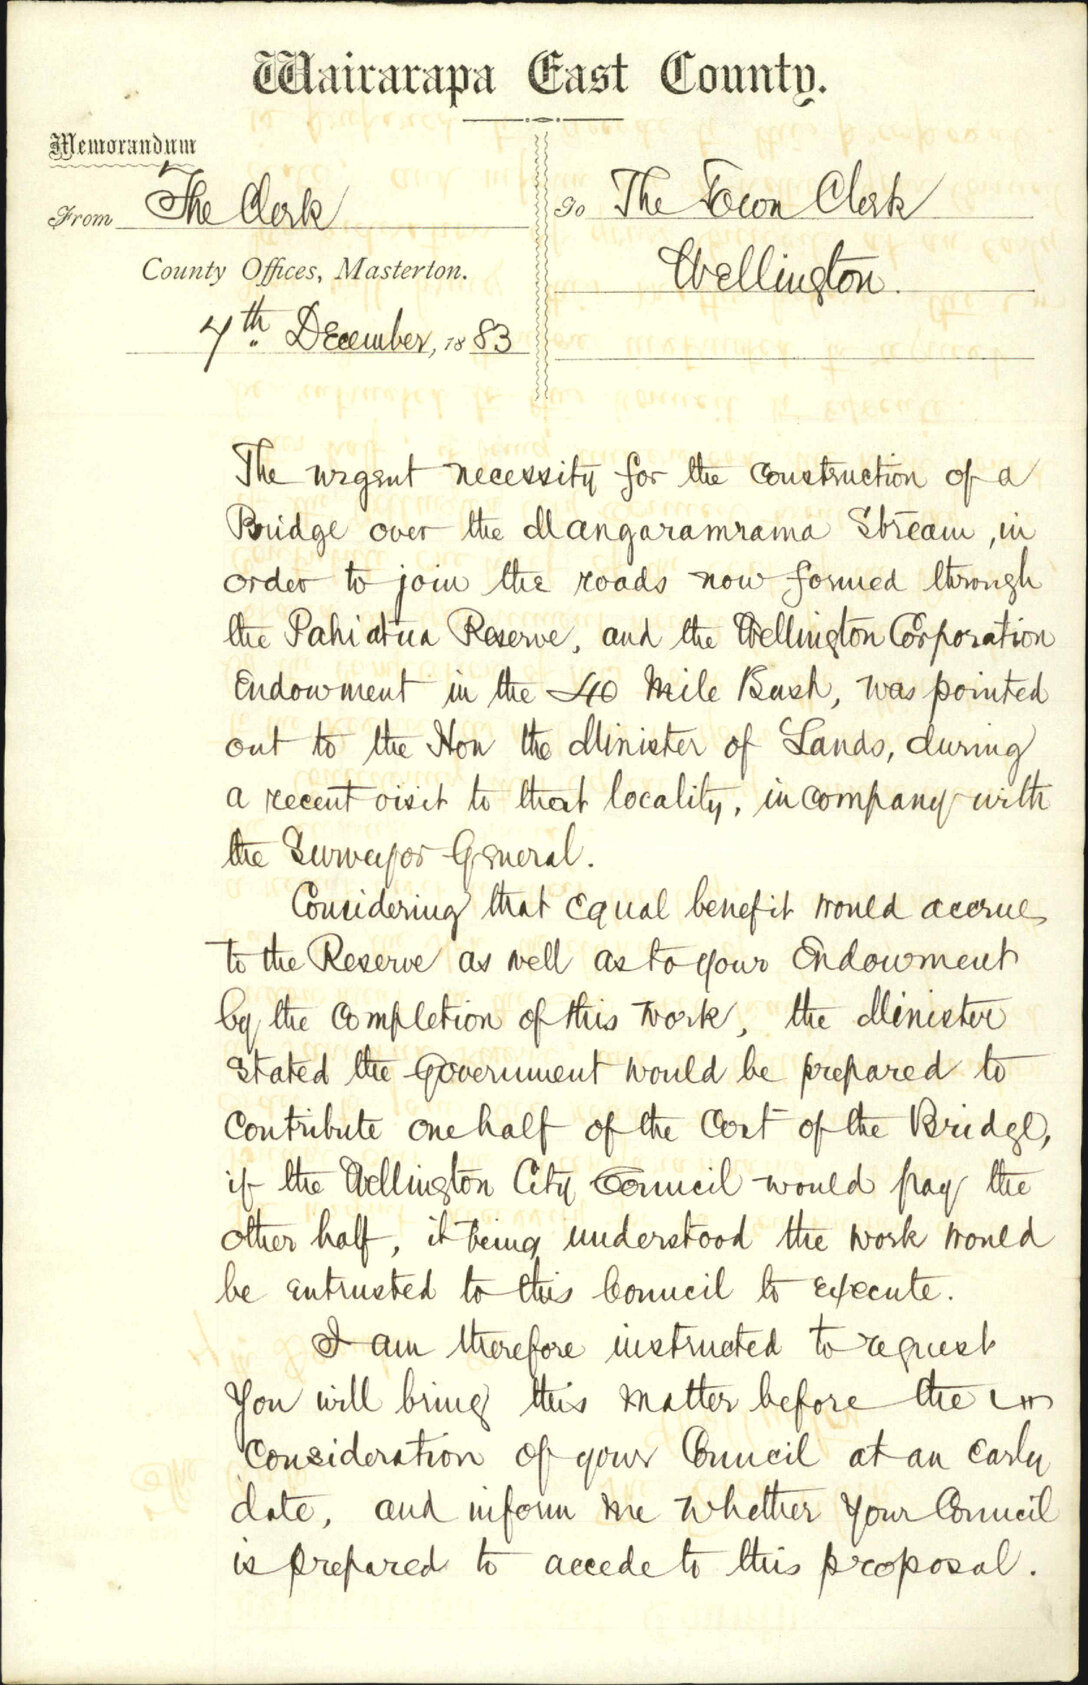 Wairarapa East County.
Memorandum
From The Clerk
County Offices, Masterton.
7th December, 1883
To The Town Clerk
Wellington.
The urgent necessity for the construction of a
Bridge over the Mangaramrama Stream, in
order to join the roads now formed through
the Pahiatua Reserve, and the Wellington Corporation
Endowment in the 40 Mile Bush, was pointed
out to the Hon the Minister of Lands, during
a recent visit to that locality, in company with
the Surveyor General.
Considering that equal benefit would accrue
to the Reserve as well as to your Endowment
by the completion of this work, the Minister
stated the Government would be prepared to
contribute one half of the Cost of the Bridge,
if the Wellington City Council would pay the
other half, it being understood the work would
be entrusted to this Council to execute.
I am therefore instructed to request
you will bring this matter before the
consideration of your Council at an early
date, and inform me whether your Council
is prepared to accede to this proposal.